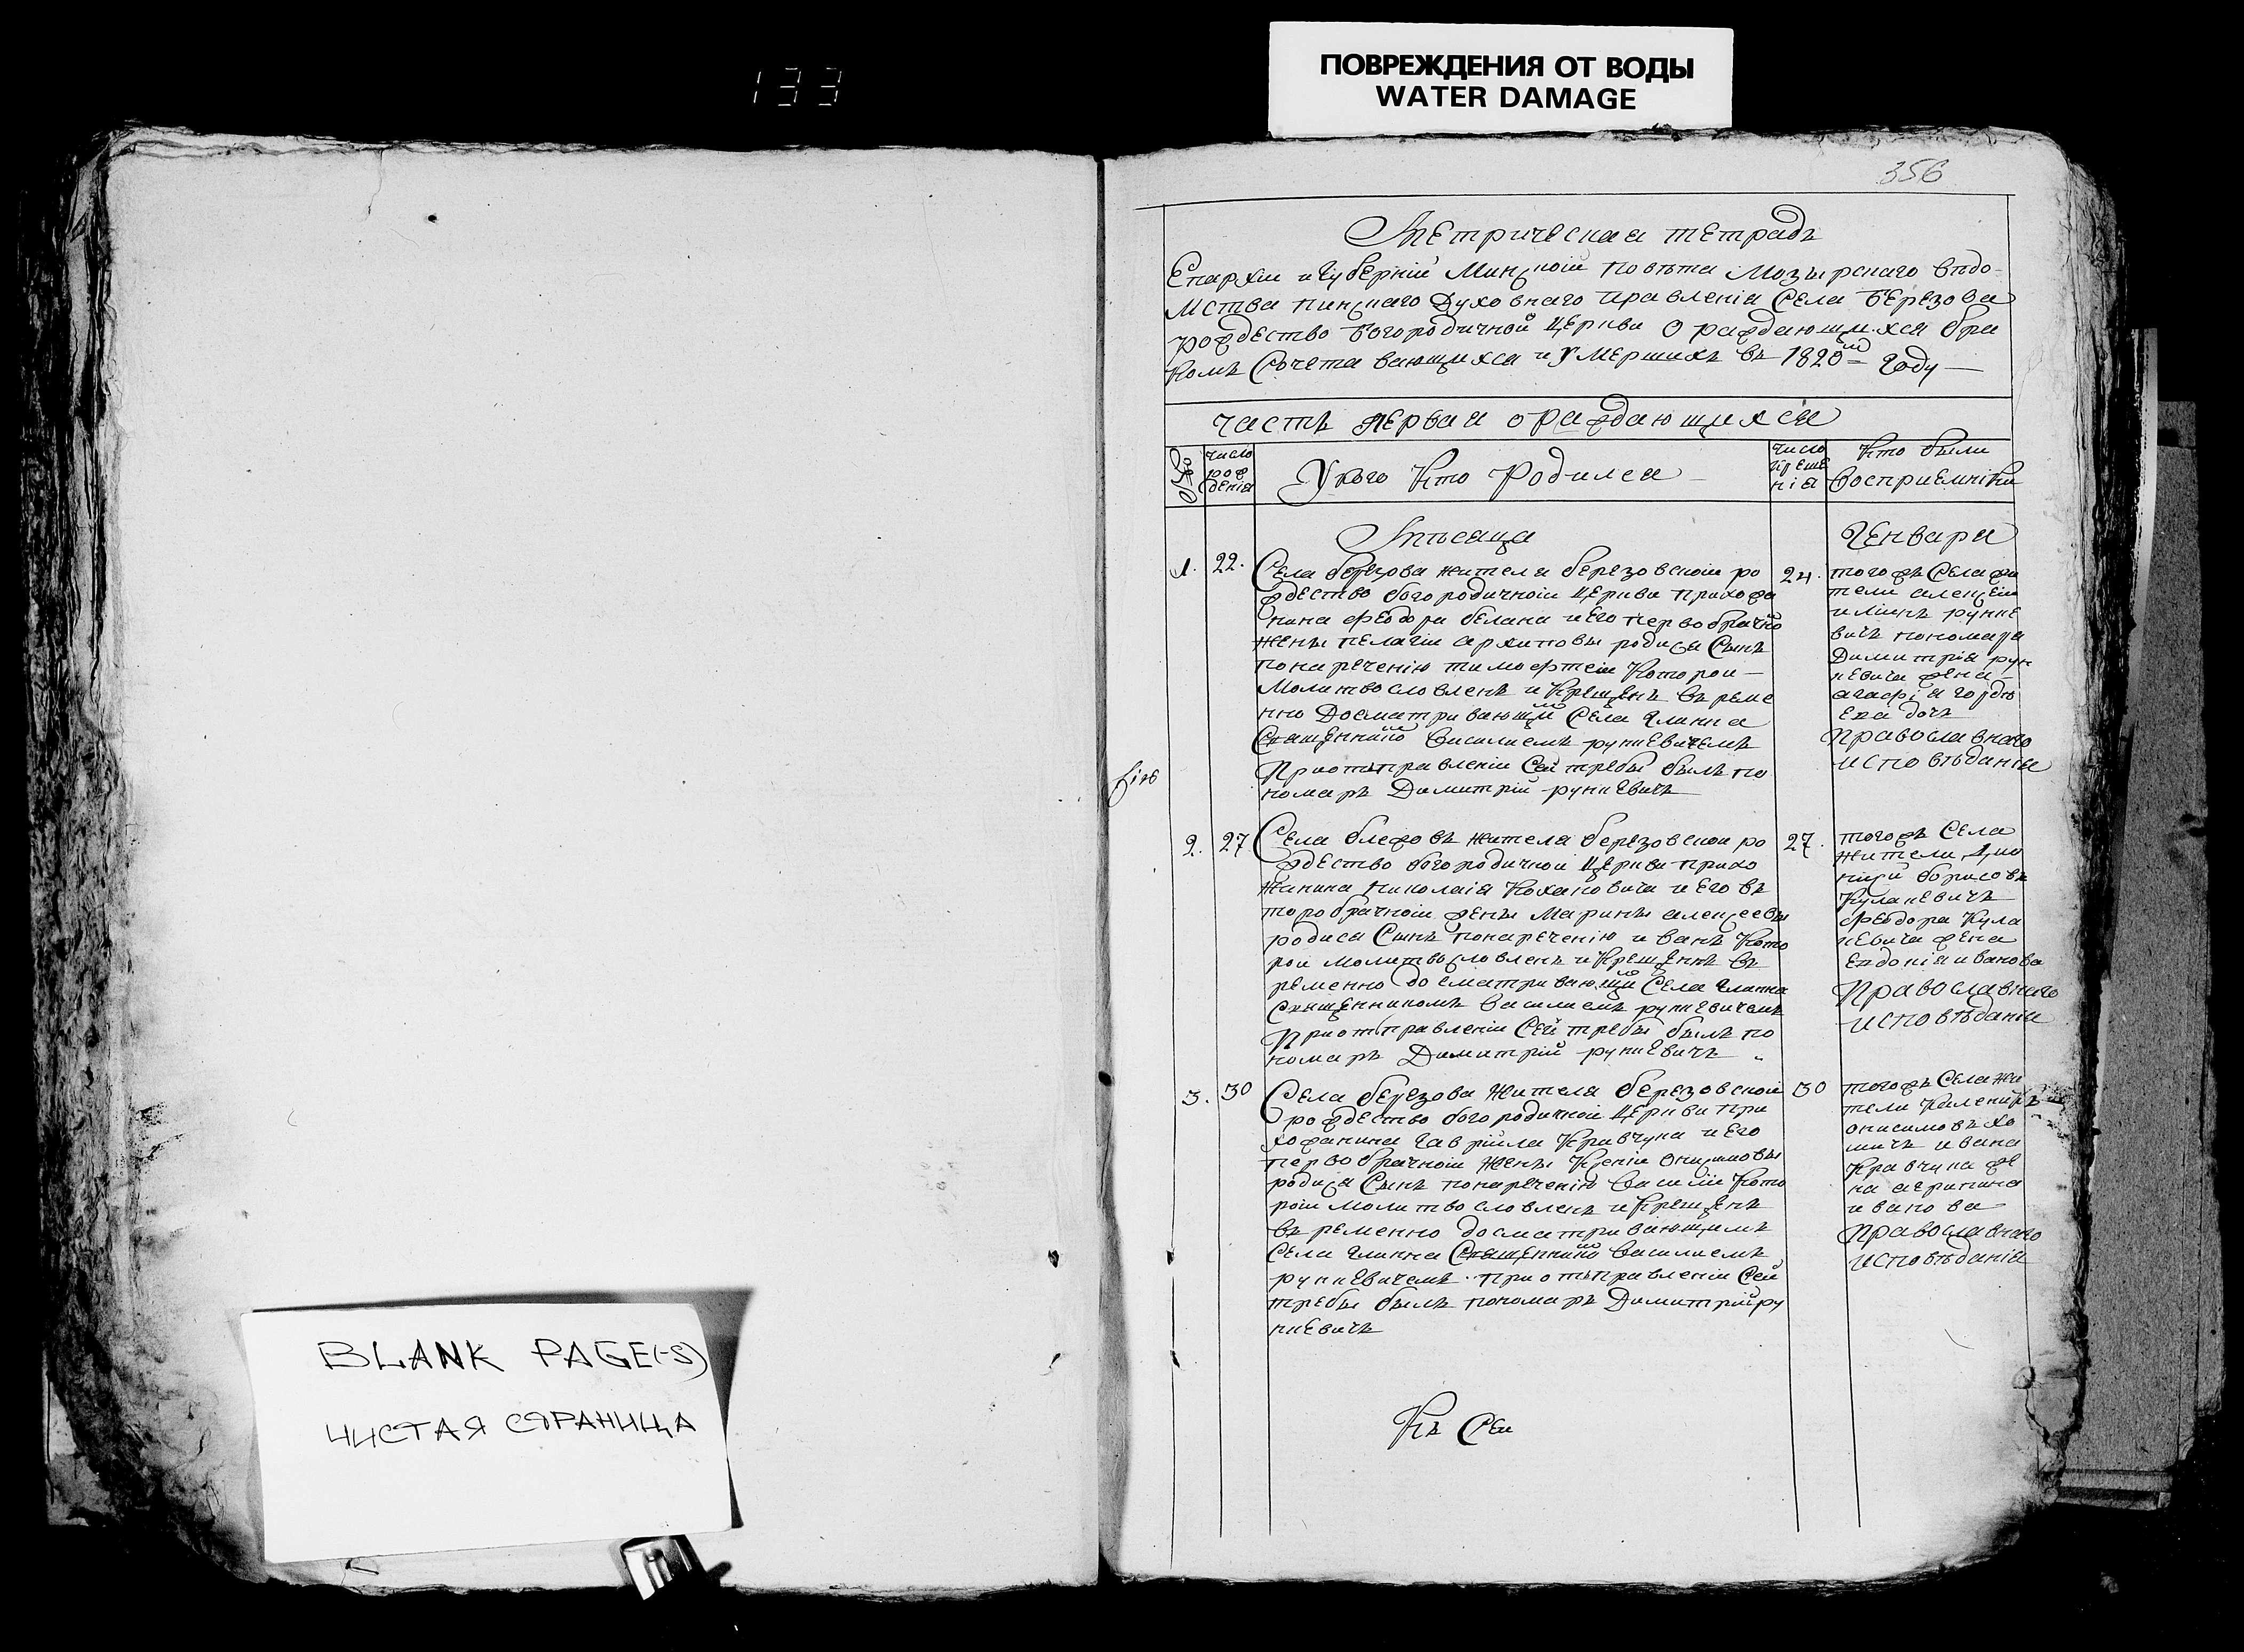 133
ПОВРЕЖДЕНИЯ ОТ ВОДЫ
WATER DAMAGE
356
Метрическая тетрадь
Епархіи и Губерніи Минской повѣта Мозырскаго вѣдо-
мства пинскаго Духовнаго правленія Села Березова
рождество богородичной Церкви о раждающихся бра
комъ Сочетавающихся и умершихъ въ 1820м году
часть первая о раждающихся
число
рож
денія
У кого Кто Родился
число
креще
нія
Кто были
восприемники
Мѣсяца
Генваря
1. 22.
Села березова жителя березовской ро
ждество богородичной Церкви прихожа
нина федора белана и его первобрачно
жены пелагіи архиповы родися Сынъ
понареченію тимофтей Которои
Молитвословленъ и Крещенъ въ реме
нно Досматривающи Села глинна
Священнико василиемъ рункевичемъ
Приотправленіи Сей требы былъ по
номаръ Димитрій рункевичъ
24.
тогожъ Села жи
тели алексѣи
рункѣ
вичъ пономара
Димитрія рун
кевича жена
агафія гордѣ
ева дочь
Православнаго
исповѣданія
2. 27
Села блежовъ жителя березовскои ро
ждество богородичнои Церкви прихо
жанина николаія Кохановича и его въ
торобрачной жены Марины алексеевы
родися Сынъ понареченію иванъ Кото
рои молитвословленъ и Крещенъ въ
ременно досматривающи Села глинна
Священникомъ василиемъ рункевичемъ
Приотправленіи Сей требы былъ по
номаръ Димитрій рункевичъ
27.
тогожъ Села
жители
борисовъ
Кулакевичъ
Феодора Кула
кевича жена
Евдокія иванова
Православнаго
исповѣданія
3. 30
Села березова жителя березовской
рождество богородичной Церкви при
хожанина гавріила Кравчука и его
первобрачной жены Ксеніи онисимовы
родися Сынъ понареченію василій Кото
рои молитвословленъ и Крещенъ
въ ременно досматривающимъ
Села глинна Священнико василиемъ
рункевичемъ приотправленіи Сей
требы былъ пономаръ Димитрій ру
нкевичъ
30
тогожъ Села жи
тели
онисимовъ хо
мичъ ивана
Кравчука же
на агрипина
иванова
Православнаго
исповѣданія
Къ Сей
BLANK PAGE(-S)
ЧИСТАЯ СТРАНИЦА